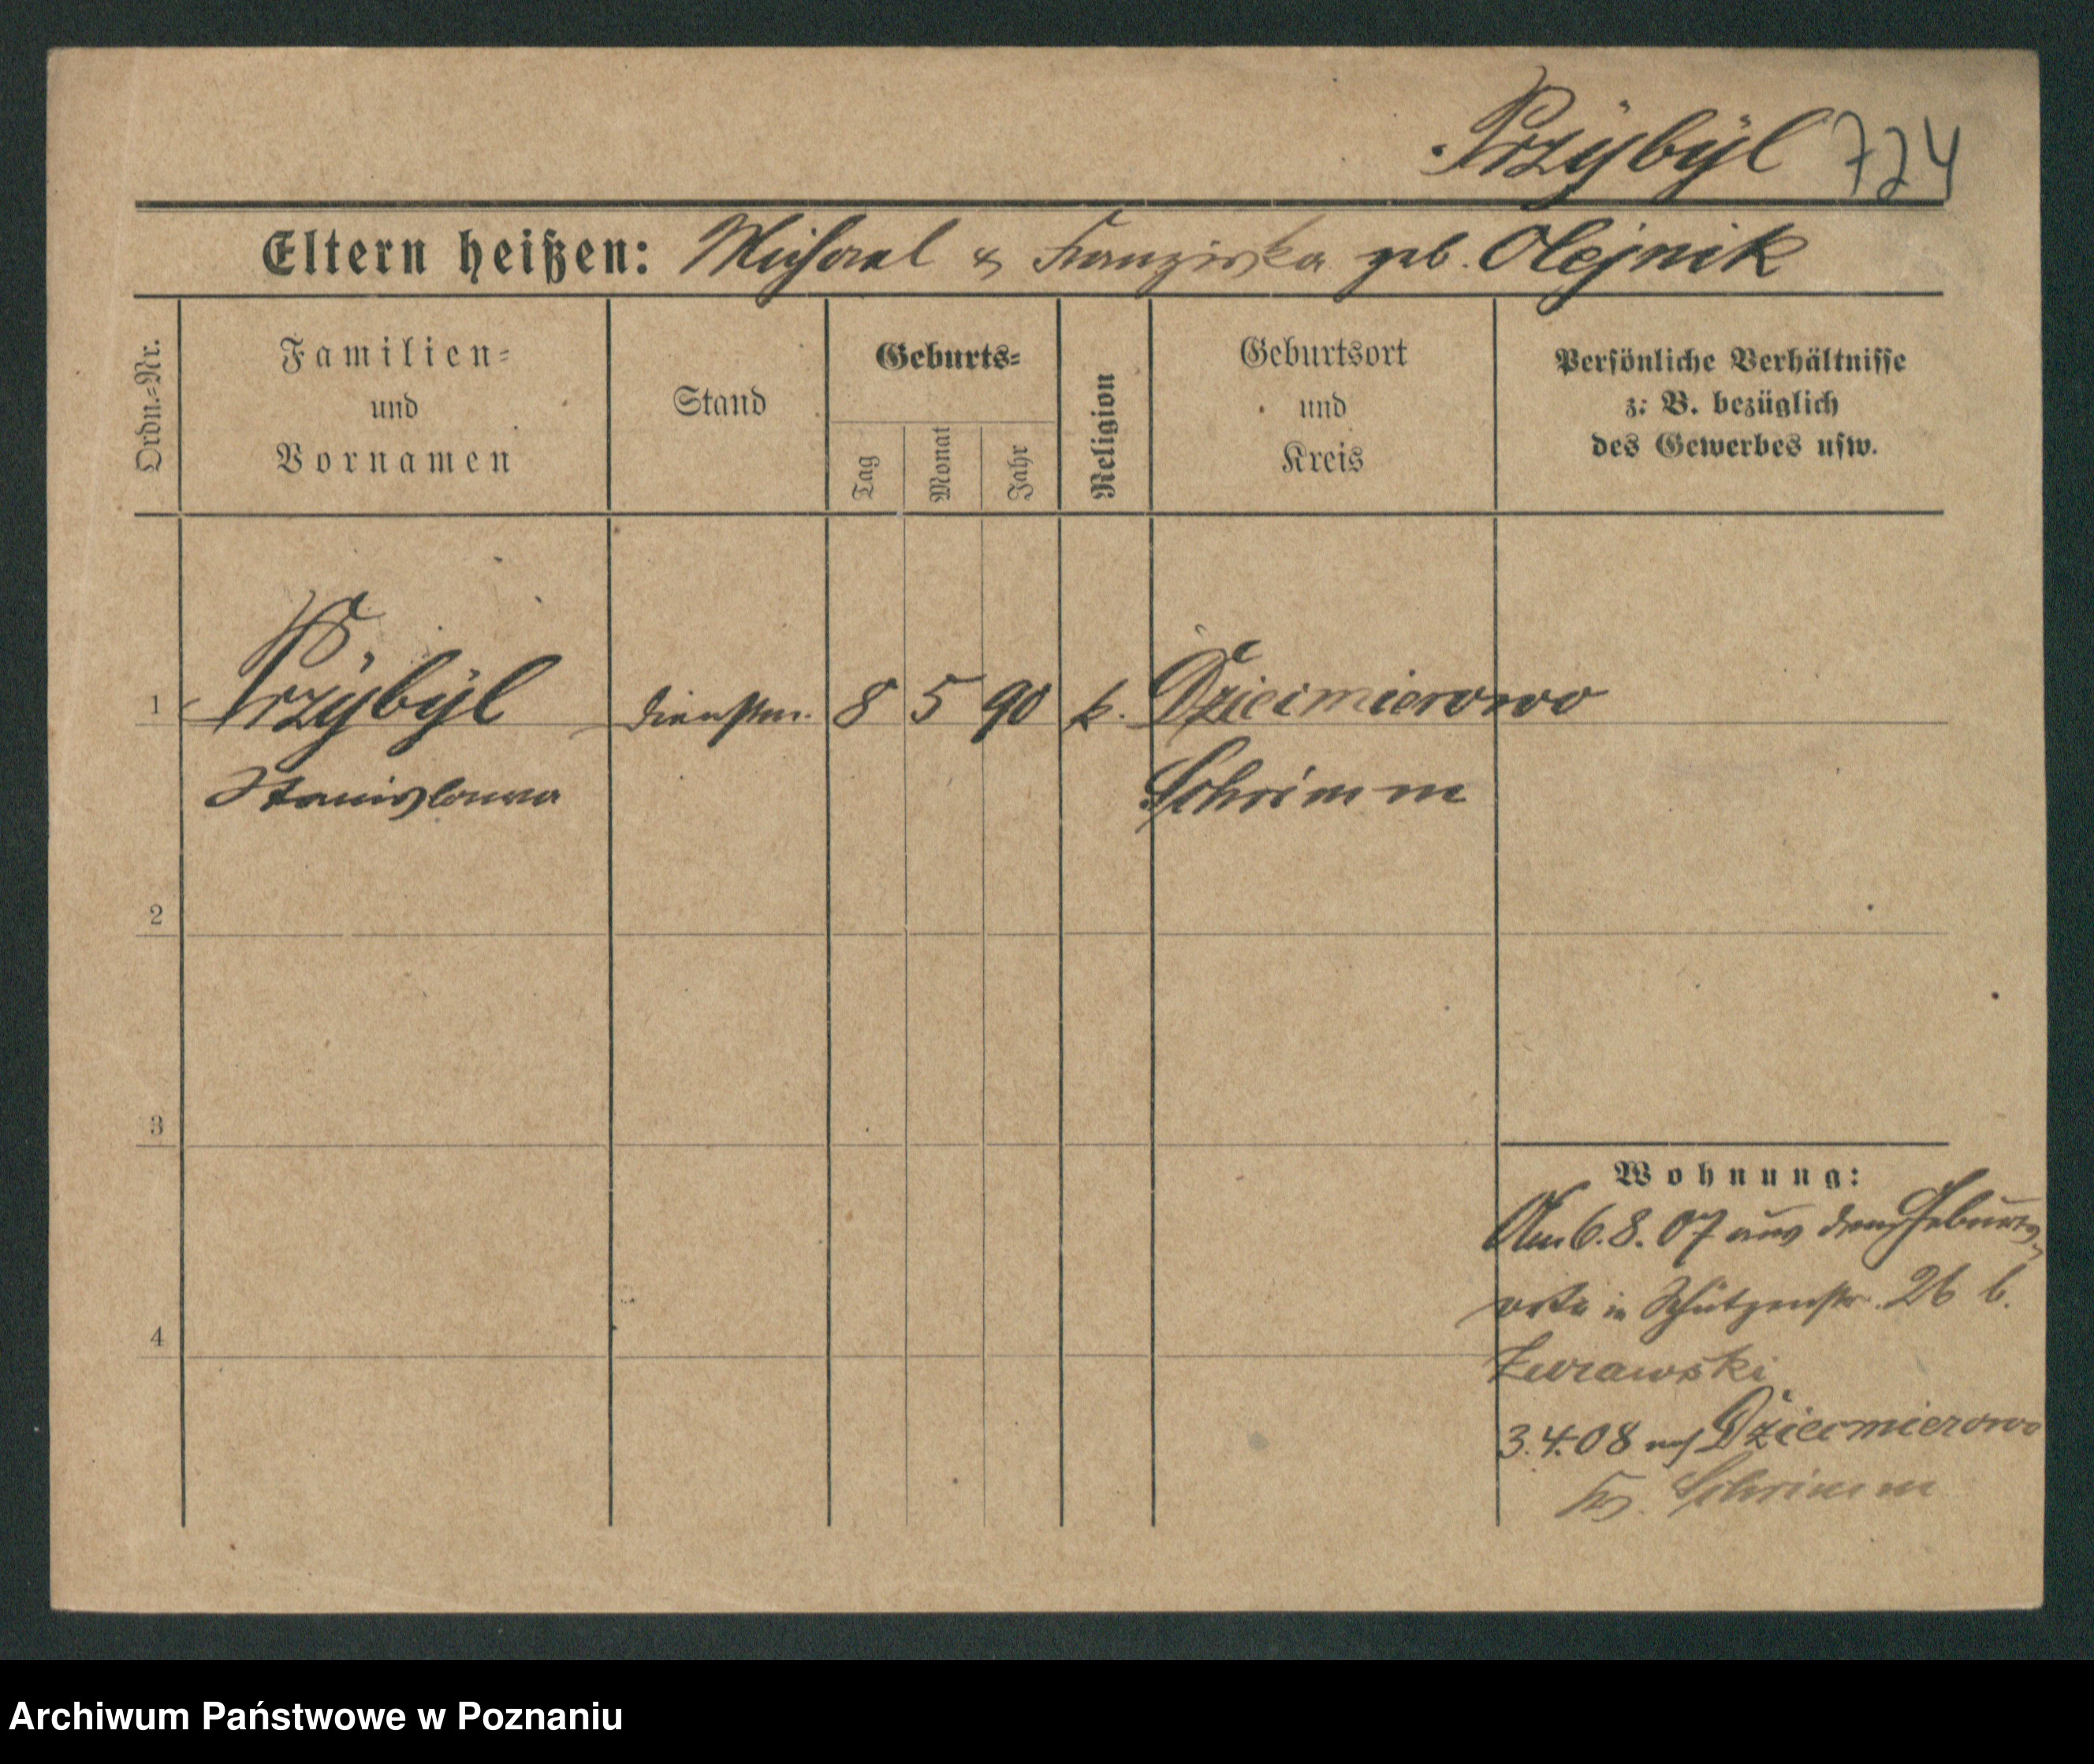 Przÿbÿl 724
Eltern heißen: Michael & Franziska geb. Olejnik
Ordn.-Nr.
Familien-
und
Vornamen
Stand
Geburts-
Tag
Monat
Jahr
Religion
Geburtsort
und
Kreis
Persönliche Verhältnisse
z. B. bezüglich
des Gewerbes usw.
1 Przÿbÿl Dienstm. 8 5 90 k. Dziecmierowo
Stanislawa Schrimm
2
3
4
Wohnung:
Am 6.8.07 aus dem Geburts-
orte in Schützenstr. 26 b.
Zurawski
3.4.08 nach Dziecmierowo
Kr. Schrimm
Archiwum Państwowe w Poznaniu